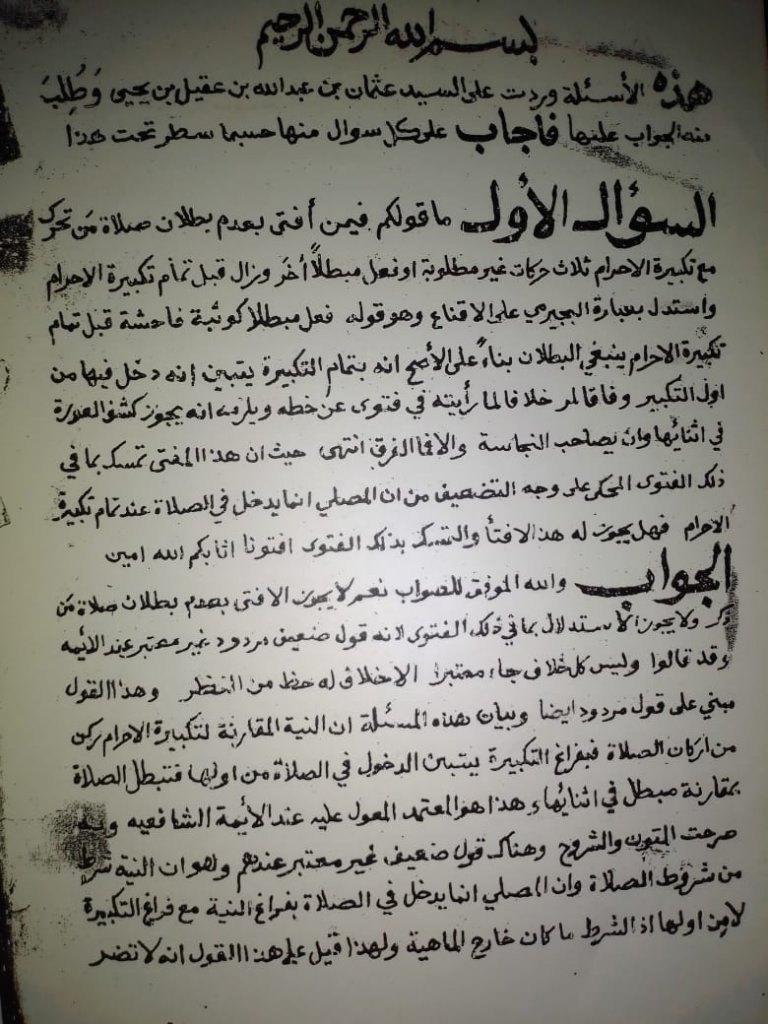 بسم الله الرحمن الرحيم
هذه الأسئلة وردت على السيد عثمان بن عبدالله بن عقيل بن يحيى وَطُلِبَ
منه الجواب عليها فاجاب على كل سوال منها حسبما سطر تحت هذا
السؤال الأول ما قولكم فيمن أفتى بعدم بطلان صلاة مَن تحرك
مع تكبيرة الاحرام ثلاث حركات غير مطلوبة او فعل مبطلاً أخَر وزال قبل تمام تكبيرة الاحرام
واستدل بعبارة البجيرمي على الاقناع وهو قوله فعل مبطلا كوثبة فاحشة قبل تمام
تكبيرة الاحرام ينبغي البطلان بناءً على الأصح انه بتمام التكبيرة يتبين إنه دخل فيها من
اول التكبير وفاقا لمر خلافا لما رأيته في فتوى عن خطه ويلزمه انه يجوز كشف العورة
في اثنائها وان يصاحب النجاسة والا فما الفرق انتهى حيث ان هذا المفتى تمسك بما في
ذلك الفتوى المحكى على وجه التضعيف من ان المصلي انما يدخل في الصلاة عند تمام تكبيرة
الاحرام فهل يجوز له هذا الافتأ والتمسك بذلك الفتوى افتونا اثابكم الله امين
الجواب والله الموفق للصواب نعم لا يجوز الافتى بعدم بطلان صلاة مَن
ذكر ولا يجوز الأستدلال بما في ذلك الفتوى لانه قول ضعيف مردود غير معتبر عند الأيمه
وقد قالوا وليس كل خلاف جاء معتبرا الا خلاف له حظ من النظر وهذا القول
مبني على قول مردود ايضا وبيان هذه المسئلة ان النية المقارنة لتكبيرة الاحرام ركن
من اركان الصلاة فبفراغ التكبيرة يتبين الدخول في الصلاة من اولها فتبطل الصلاة
بمقارنة مبطل في اثنائهاء هذا هو المعتمد المعول عليه عند الأيمة الشافعيه وبه
صرحت المتون والشروح وهناك قول ضعيف غير معتبر عندهم وهو ان النية شرط
من شروط الصلاة وان المصلي انما يدخل في الصلاة بفراغ النية مع فراغ التكبيرة
لا مِن اولها اذ الشرط ما كان خارج الماهية ولهذا قيل على هذا القول انه لا تضر